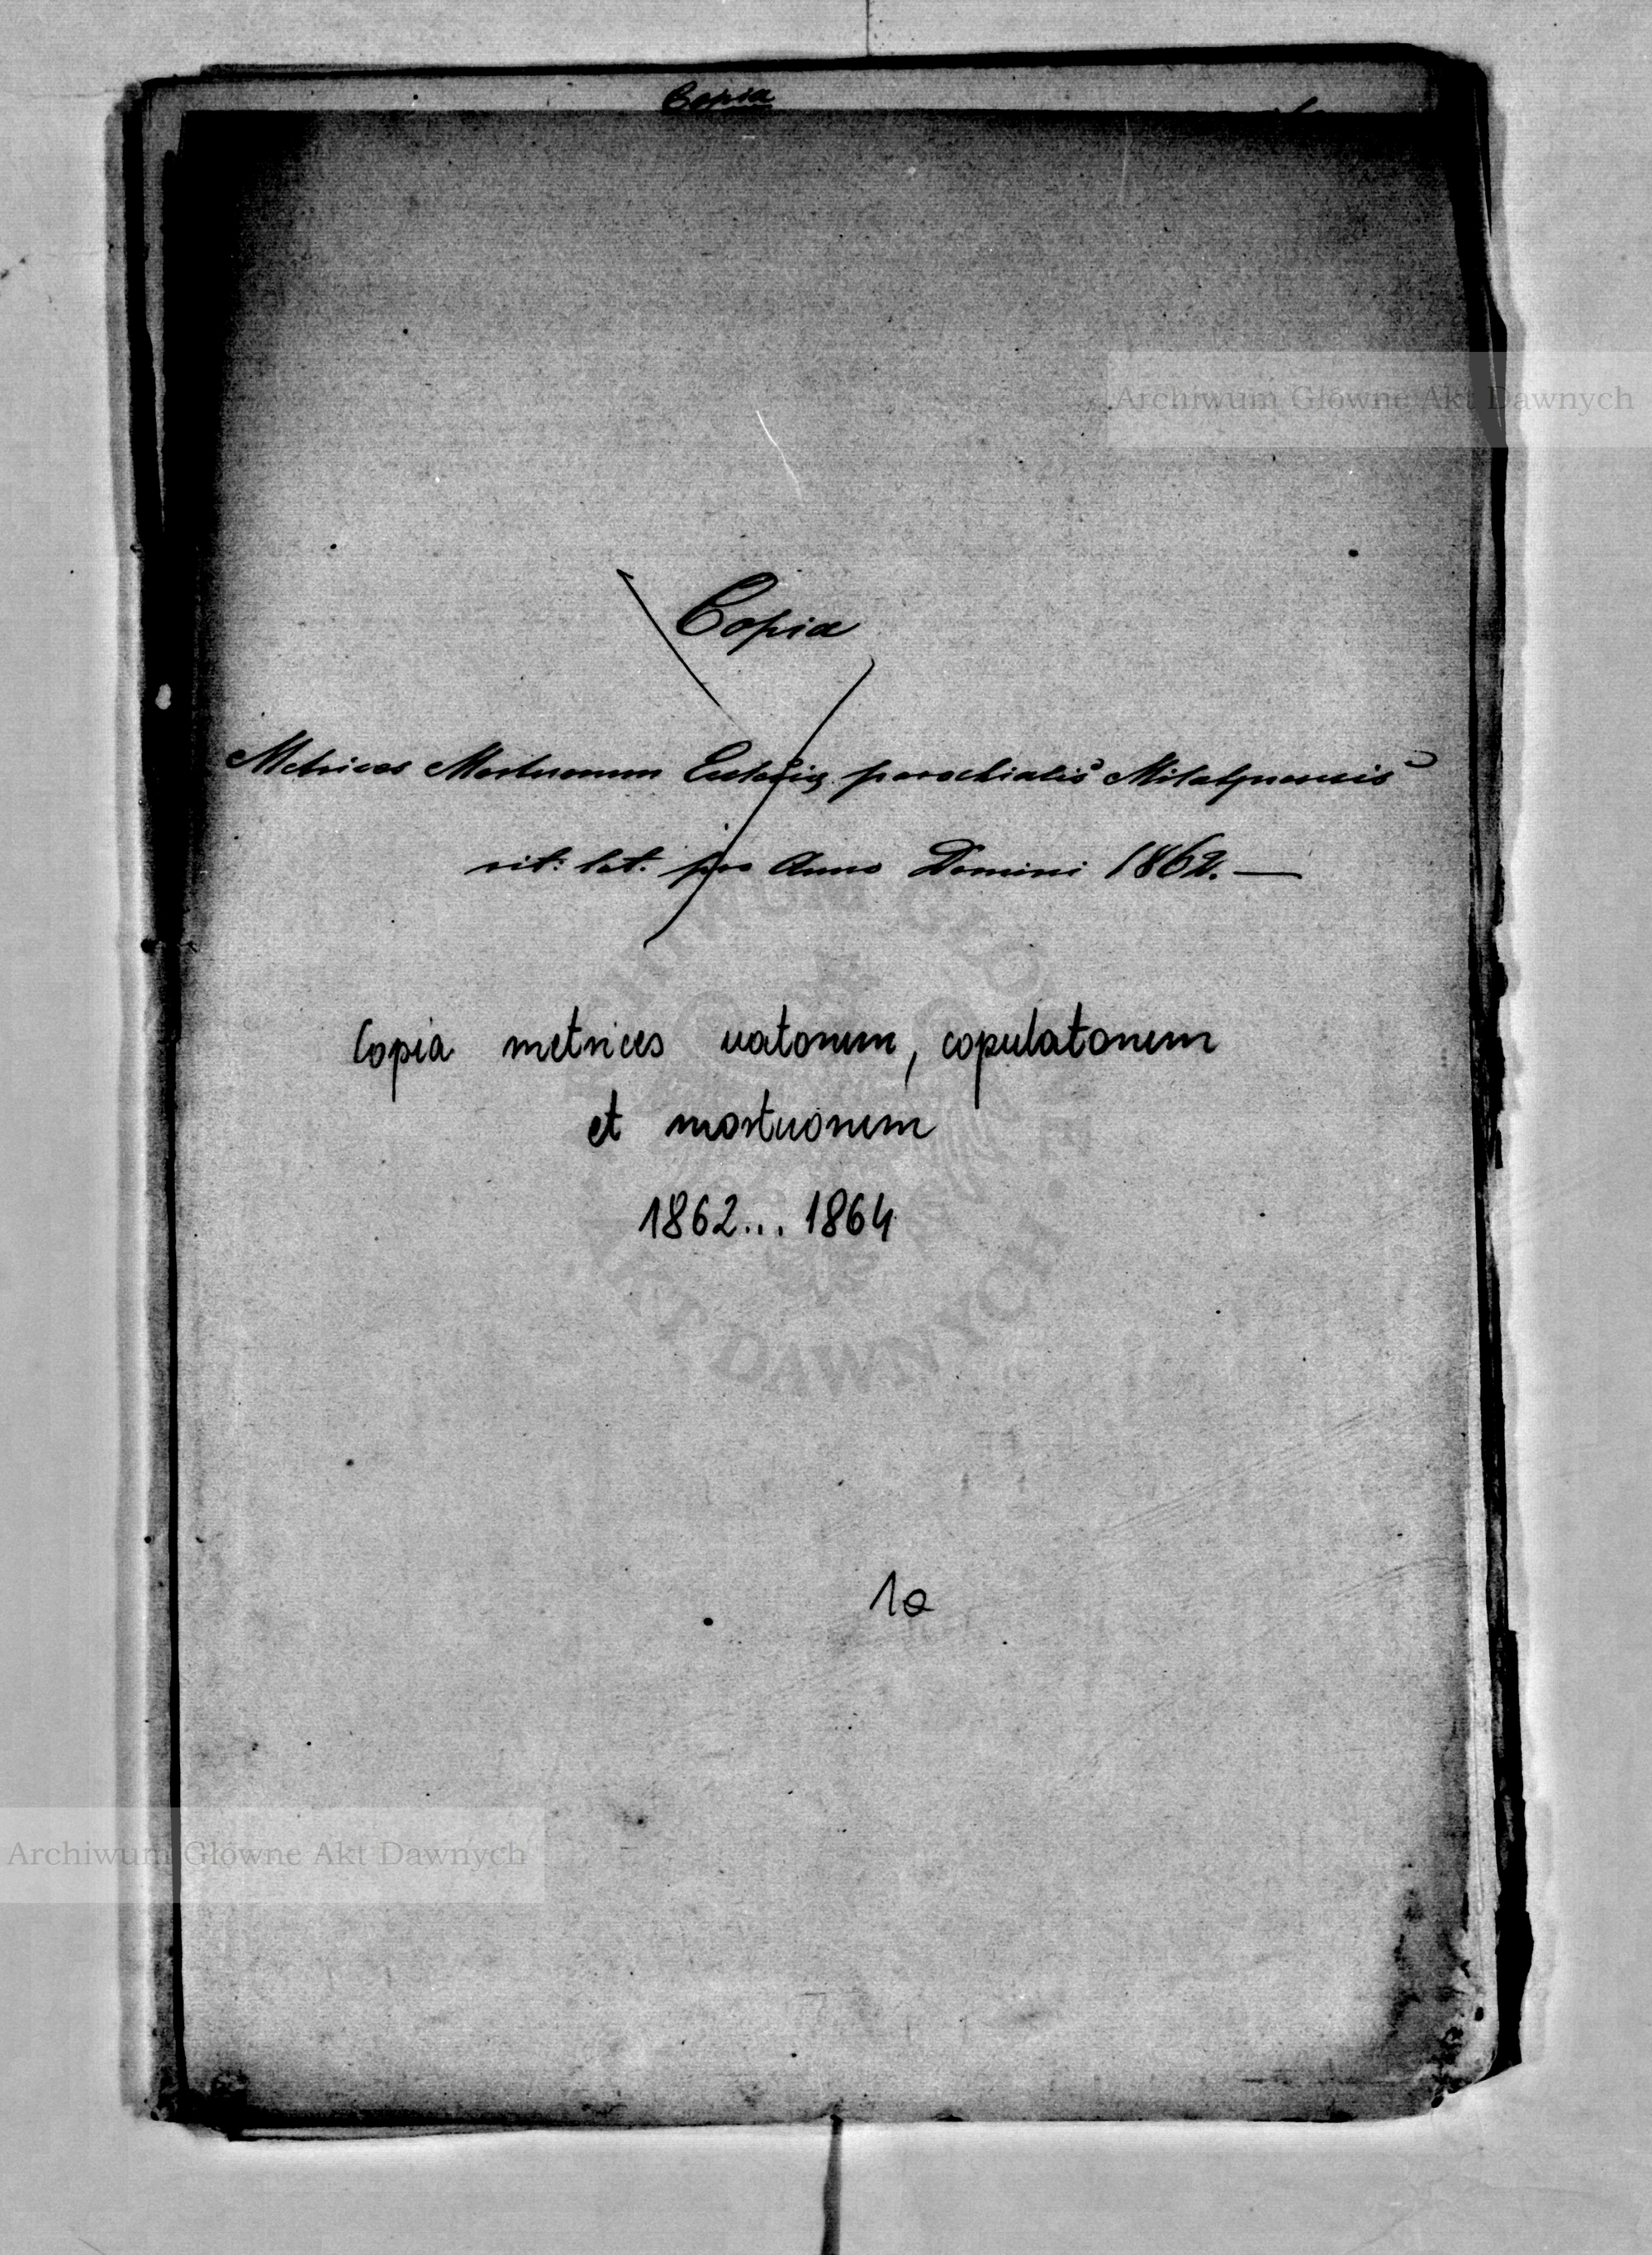 Copia
Archiwum Główne Akt Dawnych
Copia
Metrices Mortuorum Ecclesiæ parochialis
rit: lat. pro Anno Domini 1862. —
Copia metrices natorum, copulatorum
et mortuorum
1862... 1864
AKT DAWNYCH
1a
Archiwum Główne Akt Dawnych